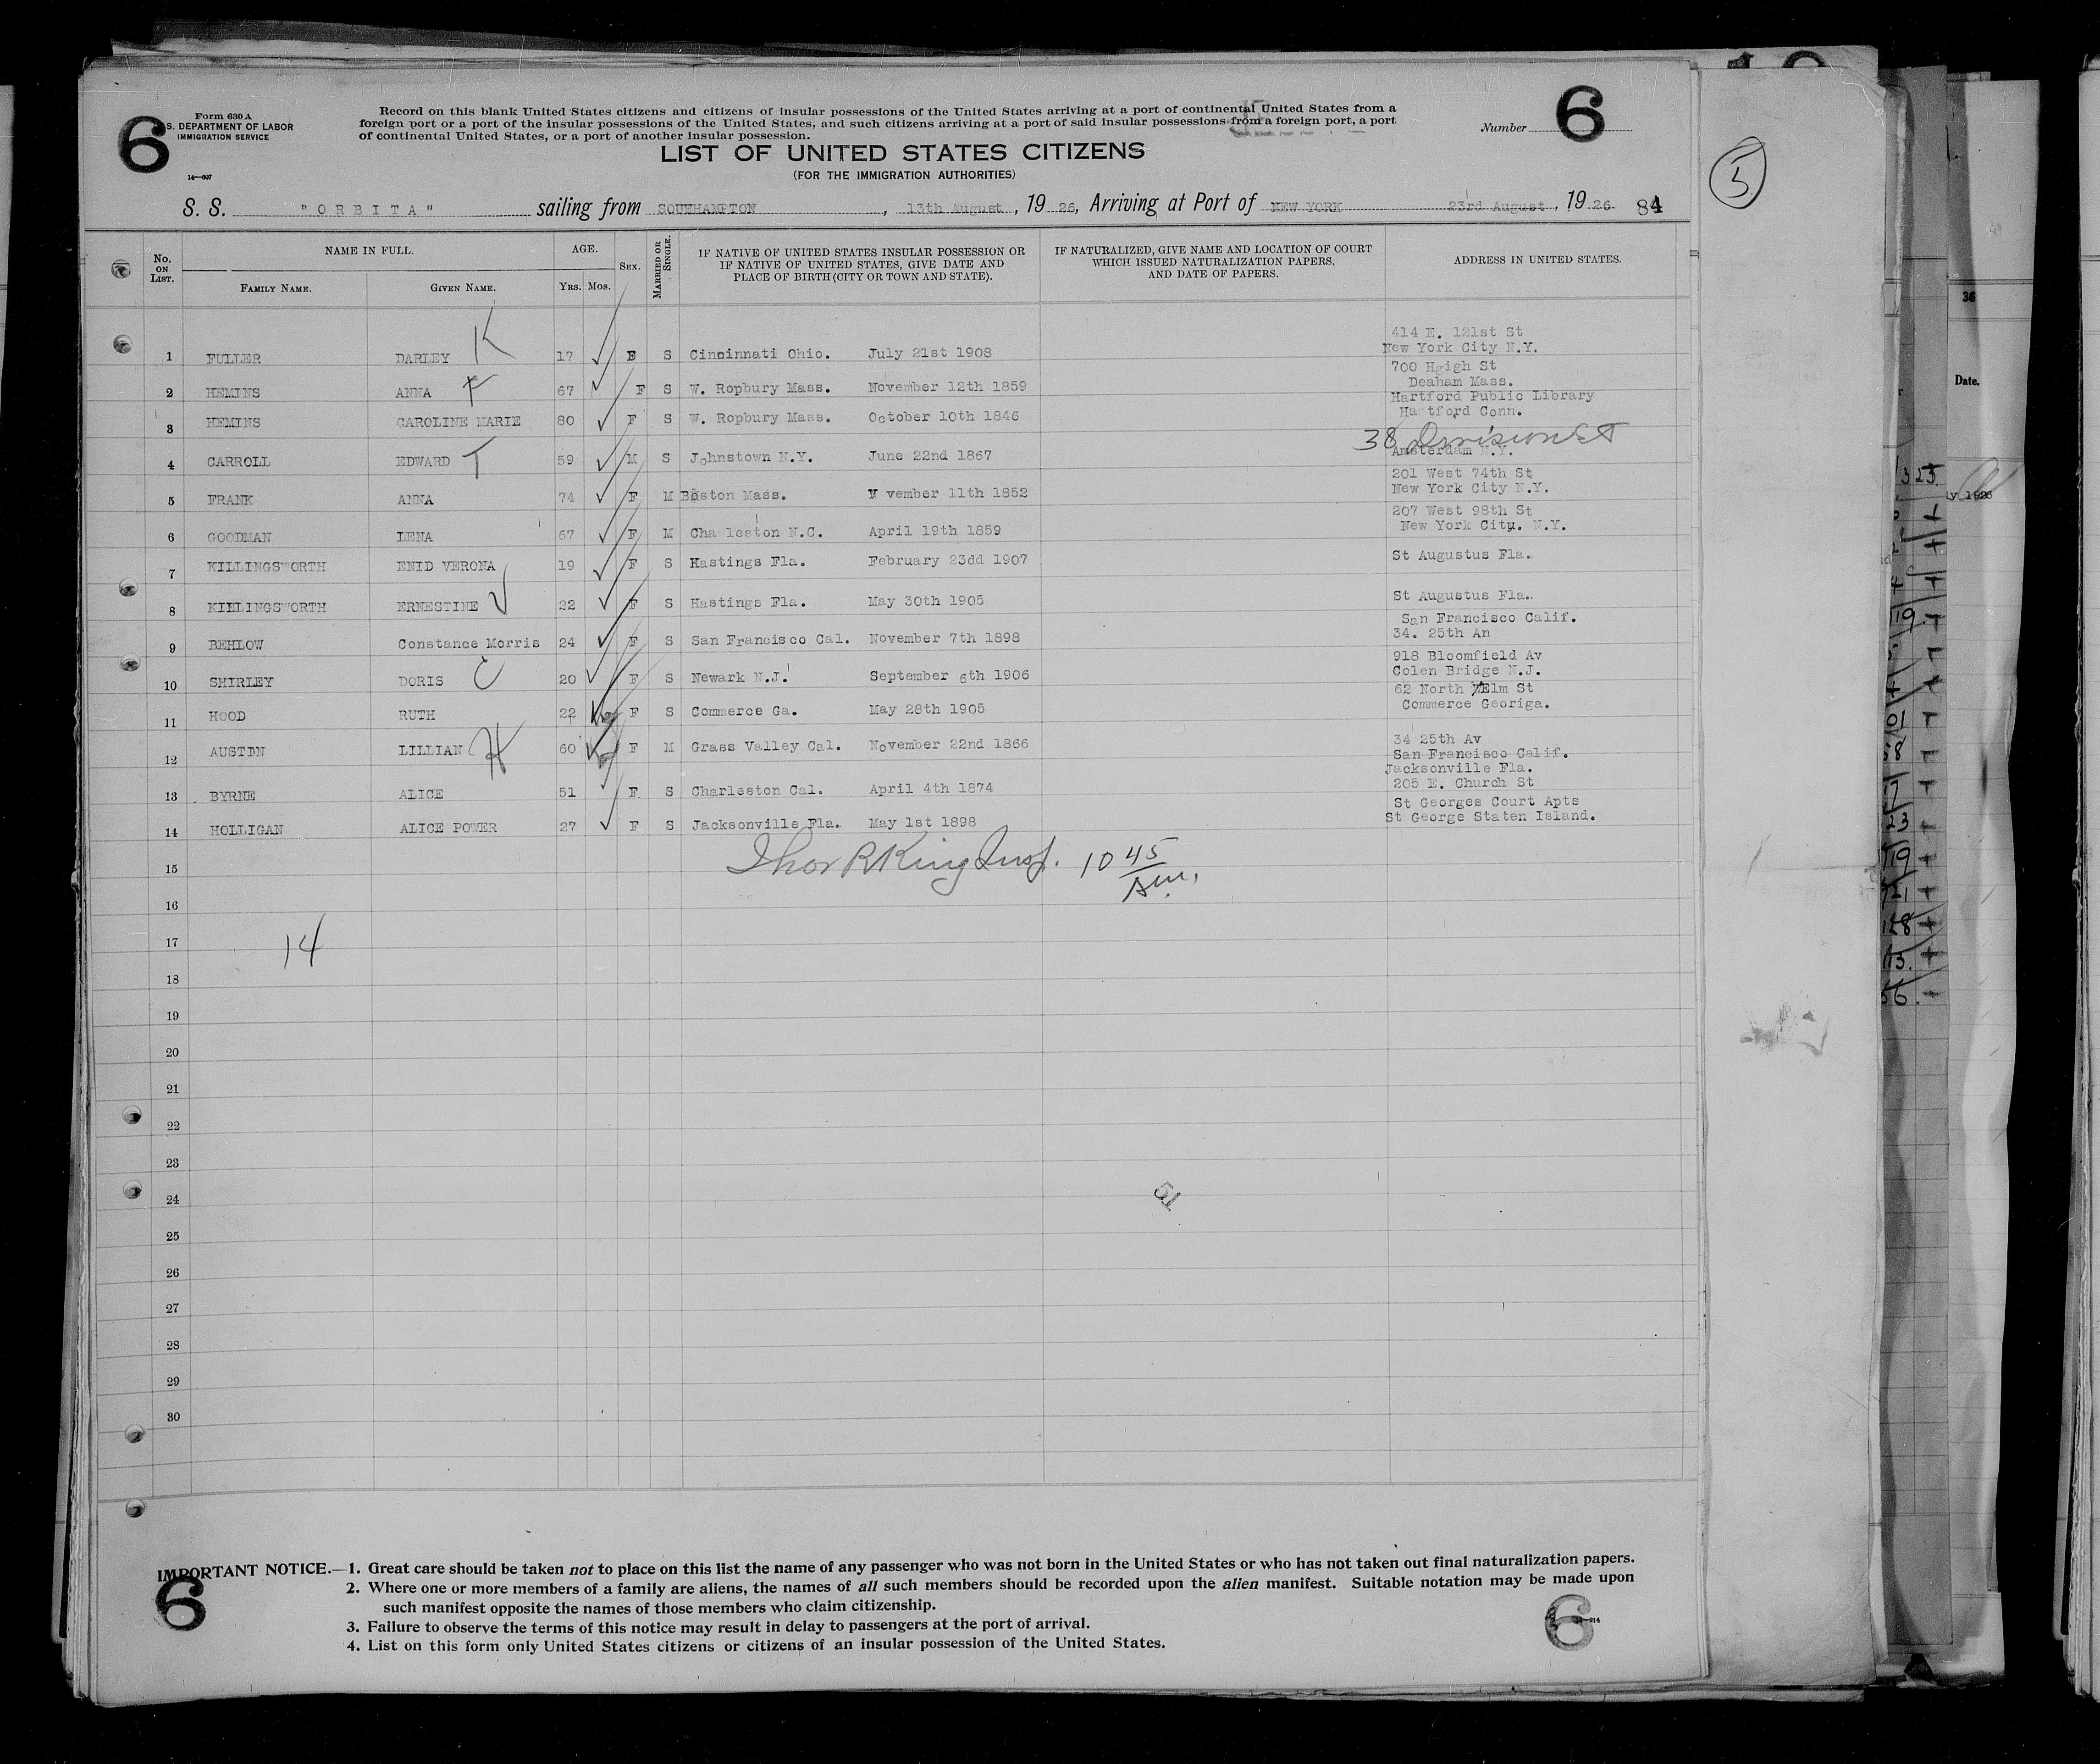 6
Form 630 A
S. DEPARTMENT OF LABOR
IMMIGRATION SERVICE
14—607
Record on this blank United States citizens and citizens of insular possessions of the United States arriving at a port of continental United States from a
foreign port or a port of the insular possessions of the United States, and such citizens arriving at a port of said insular possessions from a foreign port, a port
of continental United States, or a port of another insular possession.
Number 6
LIST OF UNITED STATES CITIZENS
(FOR THE IMMIGRATION AUTHORITIES)
5
S. S. "ORBITA" sailing from SOUTHAMPTON, 13th August, 1926, Arriving at Port of NEW YORK 23rd August, 1926 84
No. ON LIST. NAME IN FULL. FAMILY NAME. GIVEN NAME. AGE. Yrs. Mos. SEX. MARRIED OR SINGLE. IF NATIVE OF UNITED STATES INSULAR POSSESSION OR IF NATIVE OF UNITED STATES, GIVE DATE AND PLACE OF BIRTH (CITY OR TOWN AND STATE). IF NATURALIZED, GIVE NAME AND LOCATION OF COURT WHICH ISSUED NATURALIZATION PAPERS, AND DATE OF PAPERS. ADDRESS IN UNITED STATES.
414 E. 121st St
1 FULLER DARLEY K 17 F S Cincinnati Ohio. July 21st 1908 New York City N.Y.
700 Heigh St
2 HEMINS ANNA F 67 F S W. Ropbury Mass. November 12th 1859 Deaham Mass.
Hartford Public Library
3 HEMINS CAROLINE MARIE 80 F S W. Ropbury Mass. October 10th 1846 Hartford Conn.
38 Division St
4 CARROLL EDWARD T 59 M S Johnstown N.Y. June 22nd 1867 Amsterdam N.Y.
201 West 74th St
5 FRANK ANNA 74 F M Boston Mass. N vember 11th 1852 New York City N.Y.
207 West 98th St
6 GOODMAN LENA 67 F M Cha leston N.C. April 19th 1859 New York City. N.Y.
7 KILLINGSWORTH ENID VERONA 19 F S Hastings Fla. February 23dd 1907 St Augustus Fla.
8 KILLINGSWORTH ERNESTINE V 22 F S Hastings Fla. May 30th 1905 St Augustus Fla.
San Francisco Calif.
9 BEHLOW Constance Morris 24 F S San Francisco Cal. November 7th 1898 34. 25th An
918 Bloomfield Av
10 SHIRLEY DORIS C 20 F S Newark N.J. September 6th 1906 Colen Bridge N.J.
62 North Elm St
11 HOOD RUTH 22 F S Commerce Ga. May 28th 1905 Commerce Georiga.
34 25th Av
12 AUSTIN LILLIAN H 60 F M Grass Valley Cal. November 22nd 1866 San Francisco Calif.
Jacksonville Fla.
13 BYRNE ALICE 51 F S Charleston Cal. April 4th 1874 205 E. Church St
St Georges Court Apts
14 HOLLIGAN ALICE POWER 27 F S Jacksonville Fla. May 1st 1898 St George Staten Island.
15 Thos R King Insp. 10 45 Am.
16
17 14
18
19
20
21
22
23
24 51
25
26
27
28
29
30
IMPORTANT NOTICE.—1. Great care should be taken not to place on this list the name of any passenger who was not born in the United States or who has not taken out final naturalization papers.
2. Where one or more members of a family are aliens, the names of all such members should be recorded upon the alien manifest. Suitable notation may be made upon
such manifest opposite the names of those members who claim citizenship.
3. Failure to observe the terms of this notice may result in delay to passengers at the port of arrival.
4. List on this form only United States citizens or citizens of an insular possession of the United States.
6
6
36
Date.